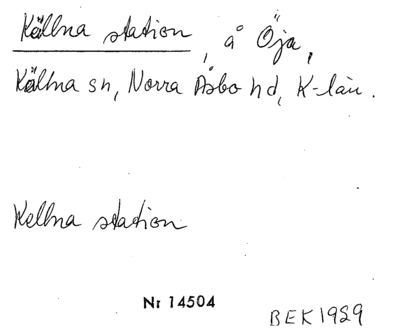 Källna station, å Öja,
Källna sn, Norra Åsbo hd, K-län.
Kellna station
Nr 14504
BEK 1929